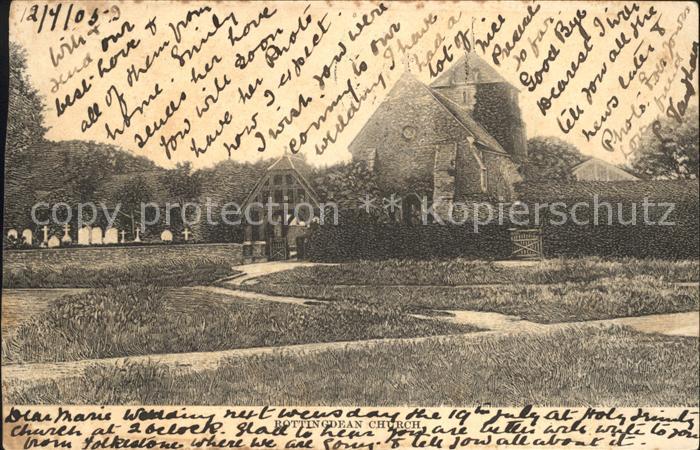 12/7/05
With &
send our
best-love &
all of them from
home. Emily
sends her love
You will soon
have her Photo
now I expect.
I wish you were
coming to our
wedding. I have
had a
lot of nice
Presents
so far.
Good Bye
Dearest I will
tell you all the
news later &
Photo. Ever your
loving friend
copy protect • Kopierschutz
Dear Marie Wedding next wensday the 19th July at Holy Trinity
ROTTINGDEAN CHURCH
Church at 2 oclock. Glad to hear you are better will write to you
from Folkestone where we are going & tell you all about it